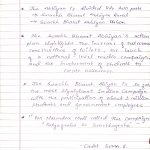 → The Abhiyan is divided into two parts
→ Swachh Bharat Abhiyan Rural
→ Swachh Bharat Abhiyan Urban
→ The Swachh Bharat Abhiyan's action
plan highlights the increase of
construction of toilets, the launch
of a national level media campaign,
and the involvement of students to
create awareness.
→ The Swachh Bharat Abhiyan is
the most significant cleanliness campaign
with the participation of about 3 million
students and government employees
→ PM Narendra Modi called this campaign
Satyagrah se Swachhagrah